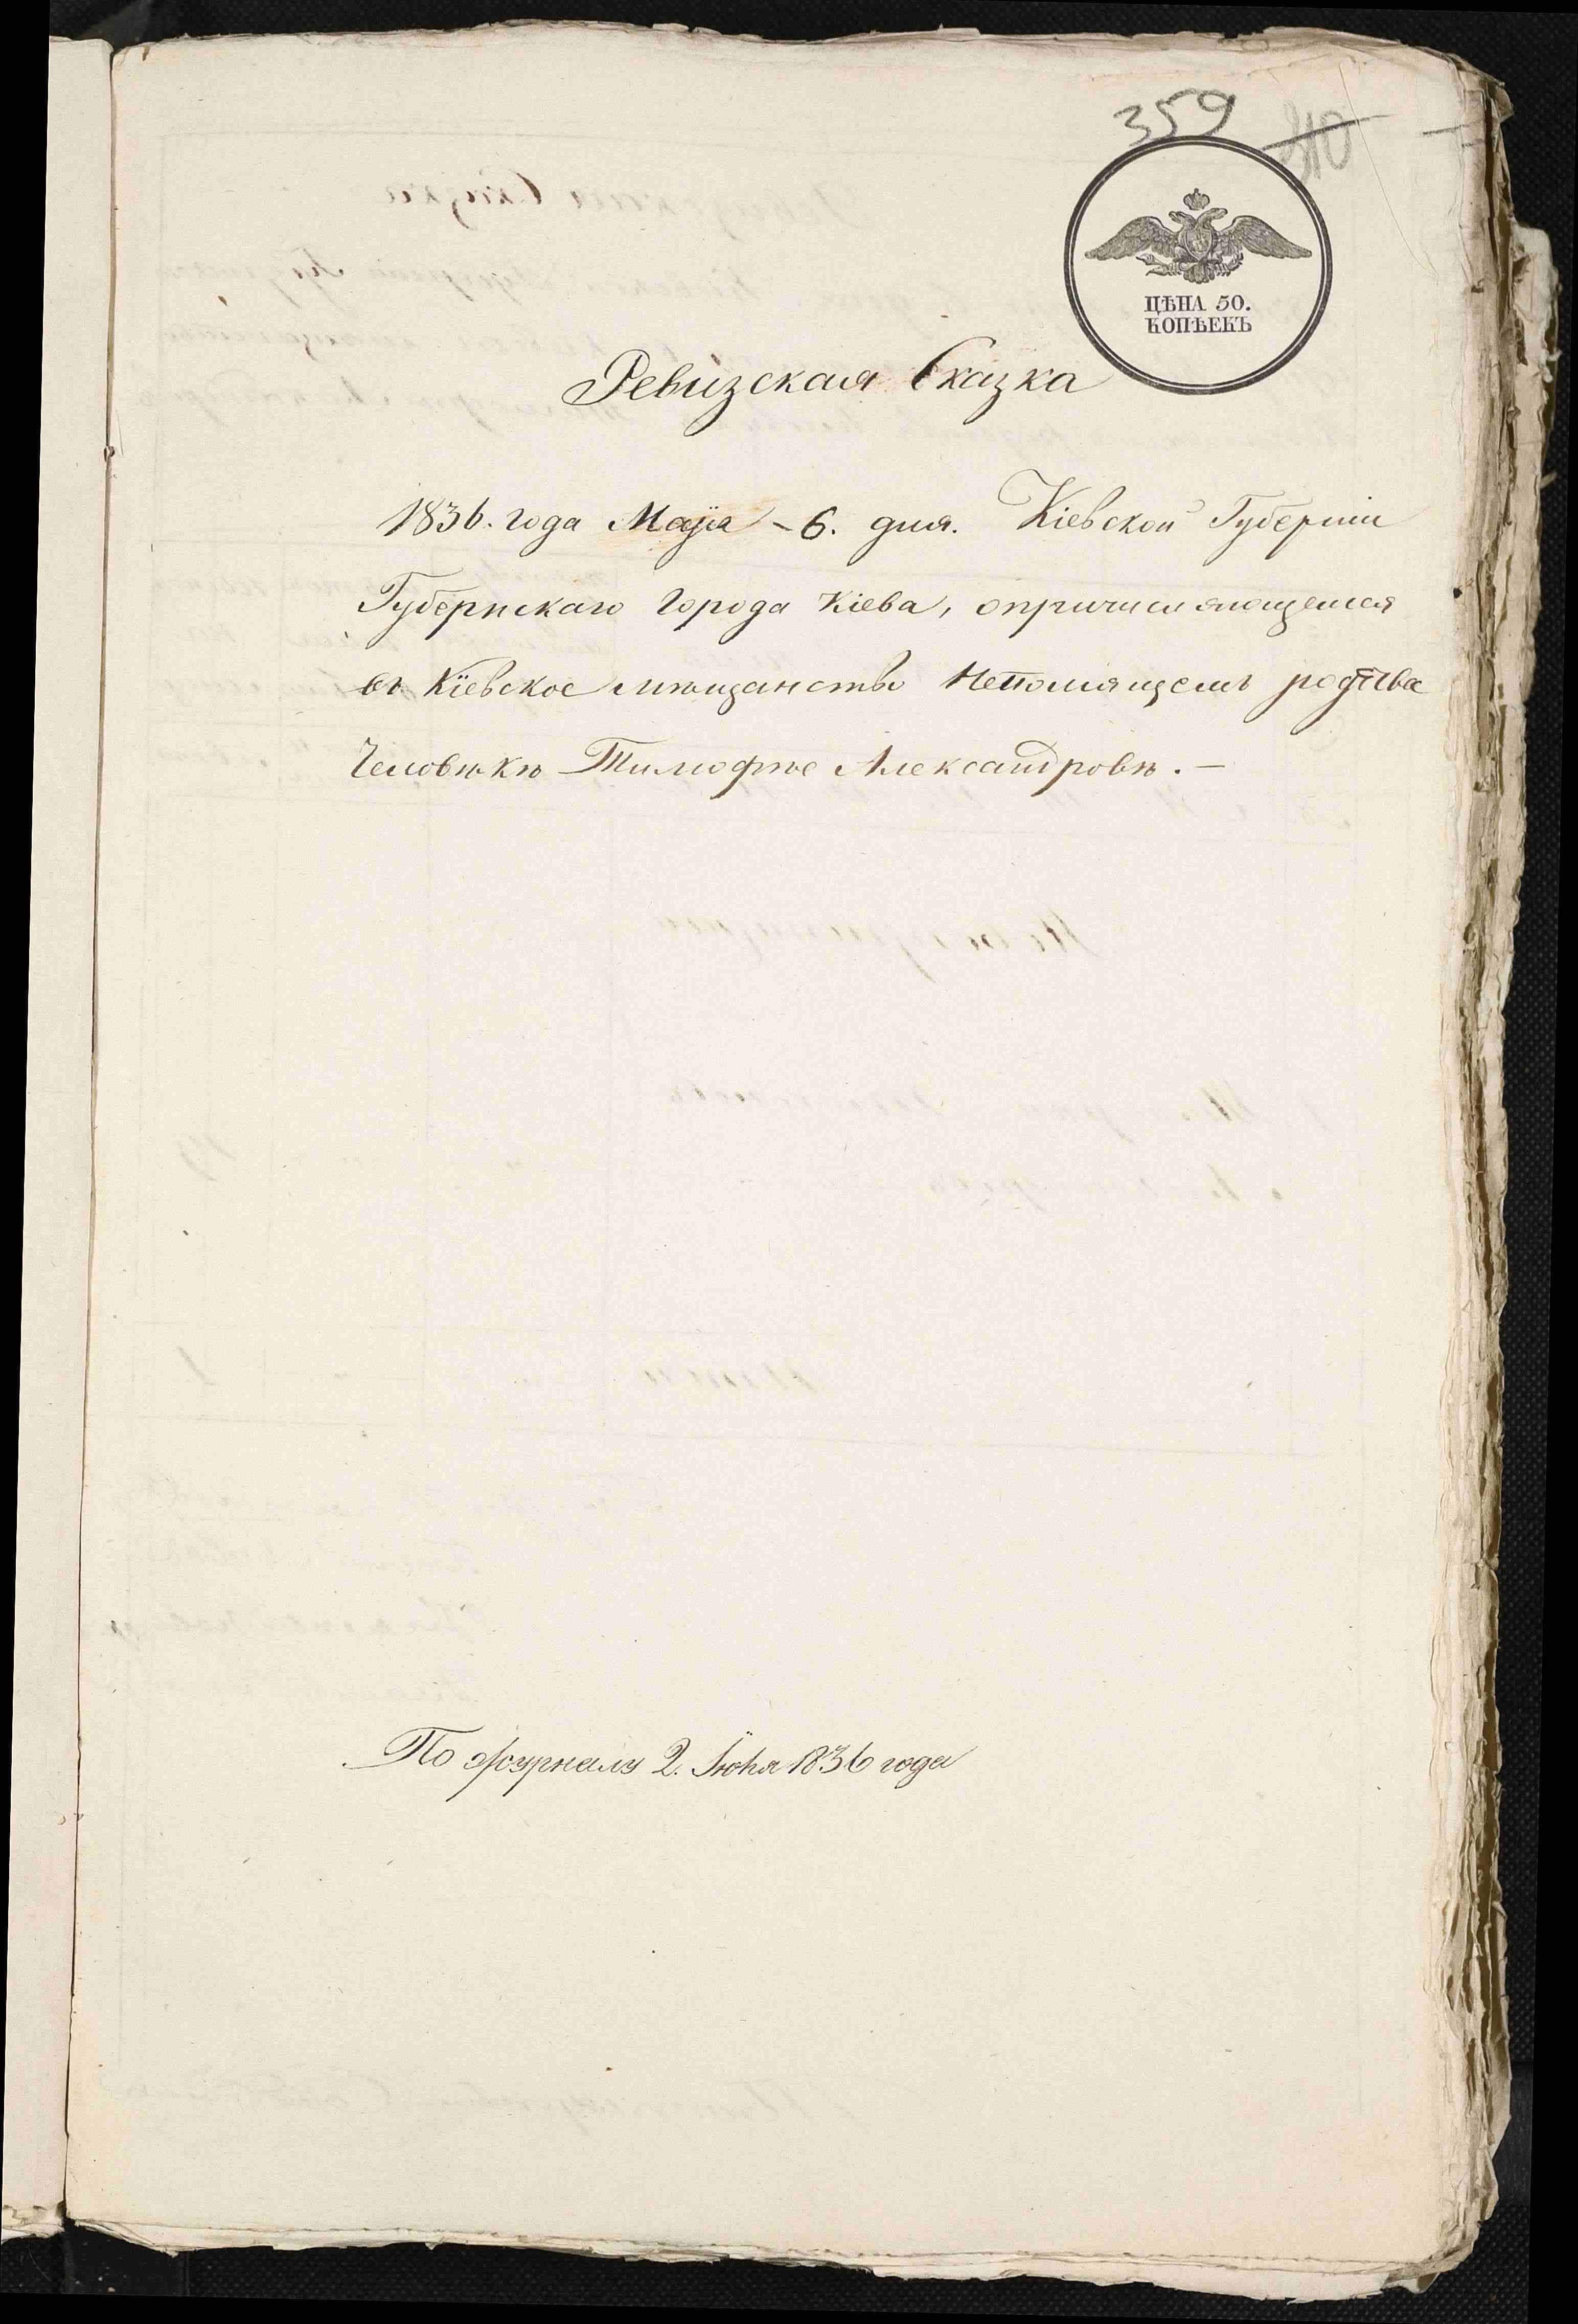 359
310
ЦѢНА 50.
КОПѢЕКЪ
Ревизская Сказка
1836. года Маія - 6. дня. Кіевской Губерніи
Губернскаго Города Кіева, опричисляющемся
въ Кіевское мѣщанство Непомнящемъ родства
Человѣкѣ Тимофѣе Александровѣ. —
По журналу 2. Іюня 1836 года